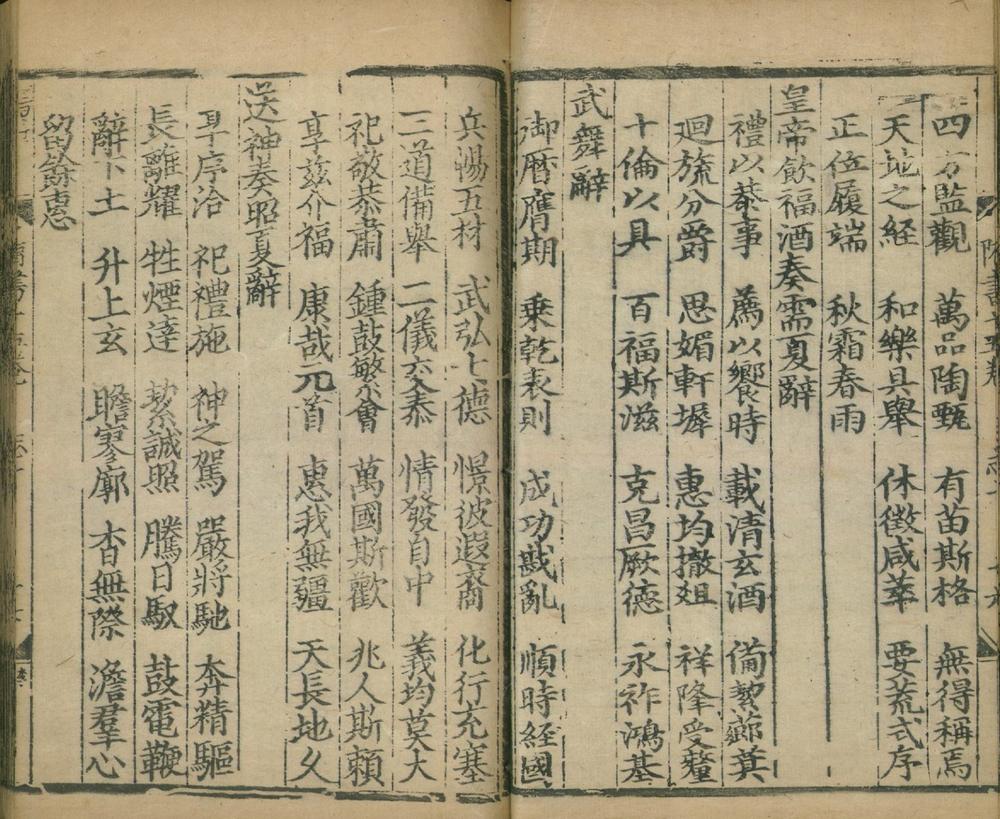 四方監觀 萬品陶甄 有苗斯格 無得稱焉
天地之經 和樂具舉 休徵咸萃 要荒式序
正位履端 秋霜春雨
皇帝飲福酒奏需夏辭
禮以恭事 薦以饗時 載清玄酒 備絜薌萁
迴旒分爵 思媚軒墀 惠均撤俎 祥降受釐
十倫以具 百福斯滋 克昌厥德 永祚鴻基
武舞辭
御曆膺期 乗乾表則 成功戡亂 順時經國
兵暢五材 武弘七德 憬彼遐裔 化行充塞
三道備舉 二儀交泰 情發自中 義均莫大
祀敬恭肅 鍾鼓繁會 萬國斯歡 兆人斯賴
享兹介福 康哉元首 惠我無疆 天長地久
送神奏昭夏辭
享序洽 祀禮施 神之駕 嚴將馳 奔精驅
長離耀 牲煙達 絜誠照 騰日馭 鼓電鞭
辭下土 升上玄 瞻寥廓 杳無際 澹羣心
留餘惠